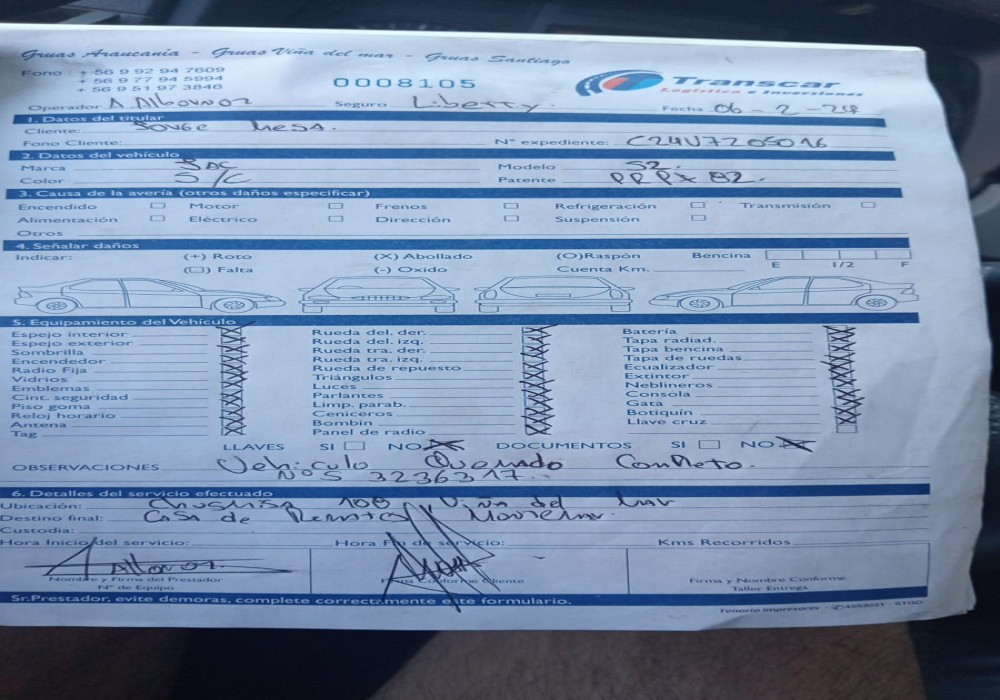 Gruas Araucanía - Gruas Viña del mar - Gruas Santiago
Fono : + 56 9 92 94 7609
+ 56 9 77 94 5994
+ 56 9 51 97 3846
0008105
Transcar
Logística e Inversiones
Operador A. Albornoz Seguro Liberty. Fecha 06 - 2 - 24
1. Datos del titular
Cliente: Jorge Mesa.
Fono Cliente: N° expediente: C24U7205016
2. Datos del vehículo
Marca JAC Modelo S2.
Color S/C Patente PRPX 82.
3. Causa de la avería (otros daños especificar)
Encendido Motor Frenos Refrigeración Transmisión
Alimentación Eléctrico Dirección Suspensión
Otros
4. Señalar daños
Indicar: (+) Roto (X) Abollado (O)Raspón Bencina
E 1/2 F
(□) Falta (-) Oxido Cuenta Km.
5. Equipamiento del Vehículo
Espejo interior Rueda del. der. Batería
Espejo exterior Rueda del. izq. Tapa radiad.
Sombrilla Rueda tra. der. Tapa bencina
Encendedor Rueda tra. izq. Tapa de ruedas
Radio Fija Rueda de repuesto Ecualizador
Vidrios Triángulos Extintor
Emblemas Luces Neblineros
Cint. seguridad Parlantes Consola
Piso goma Limp. parab. Gata
Reloj horario Ceniceros Botiquín
Antena Bombin Llave cruz
Tag Panel de radio
LLAVES SI NO DOCUMENTOS SI NO
OBSERVACIONES Vehiculo Quemado Completo.
N°S 3236317.
6. Detalles del servicio efectuado
Ubicación: 108 Viña del Mar
Destino final: Casa de Remates
Custodia:
Hora Inicio del servicio: Hora Fin de servicio: Kms Recorridos
A. Albornoz.
Nombre y Firma del Prestador
N° de Equipo
Firma Conforme Cliente
Firma y Nombre Conforme
Taller Entrega
Sr.Prestador, evite demoras, complete correctamente este formulario.